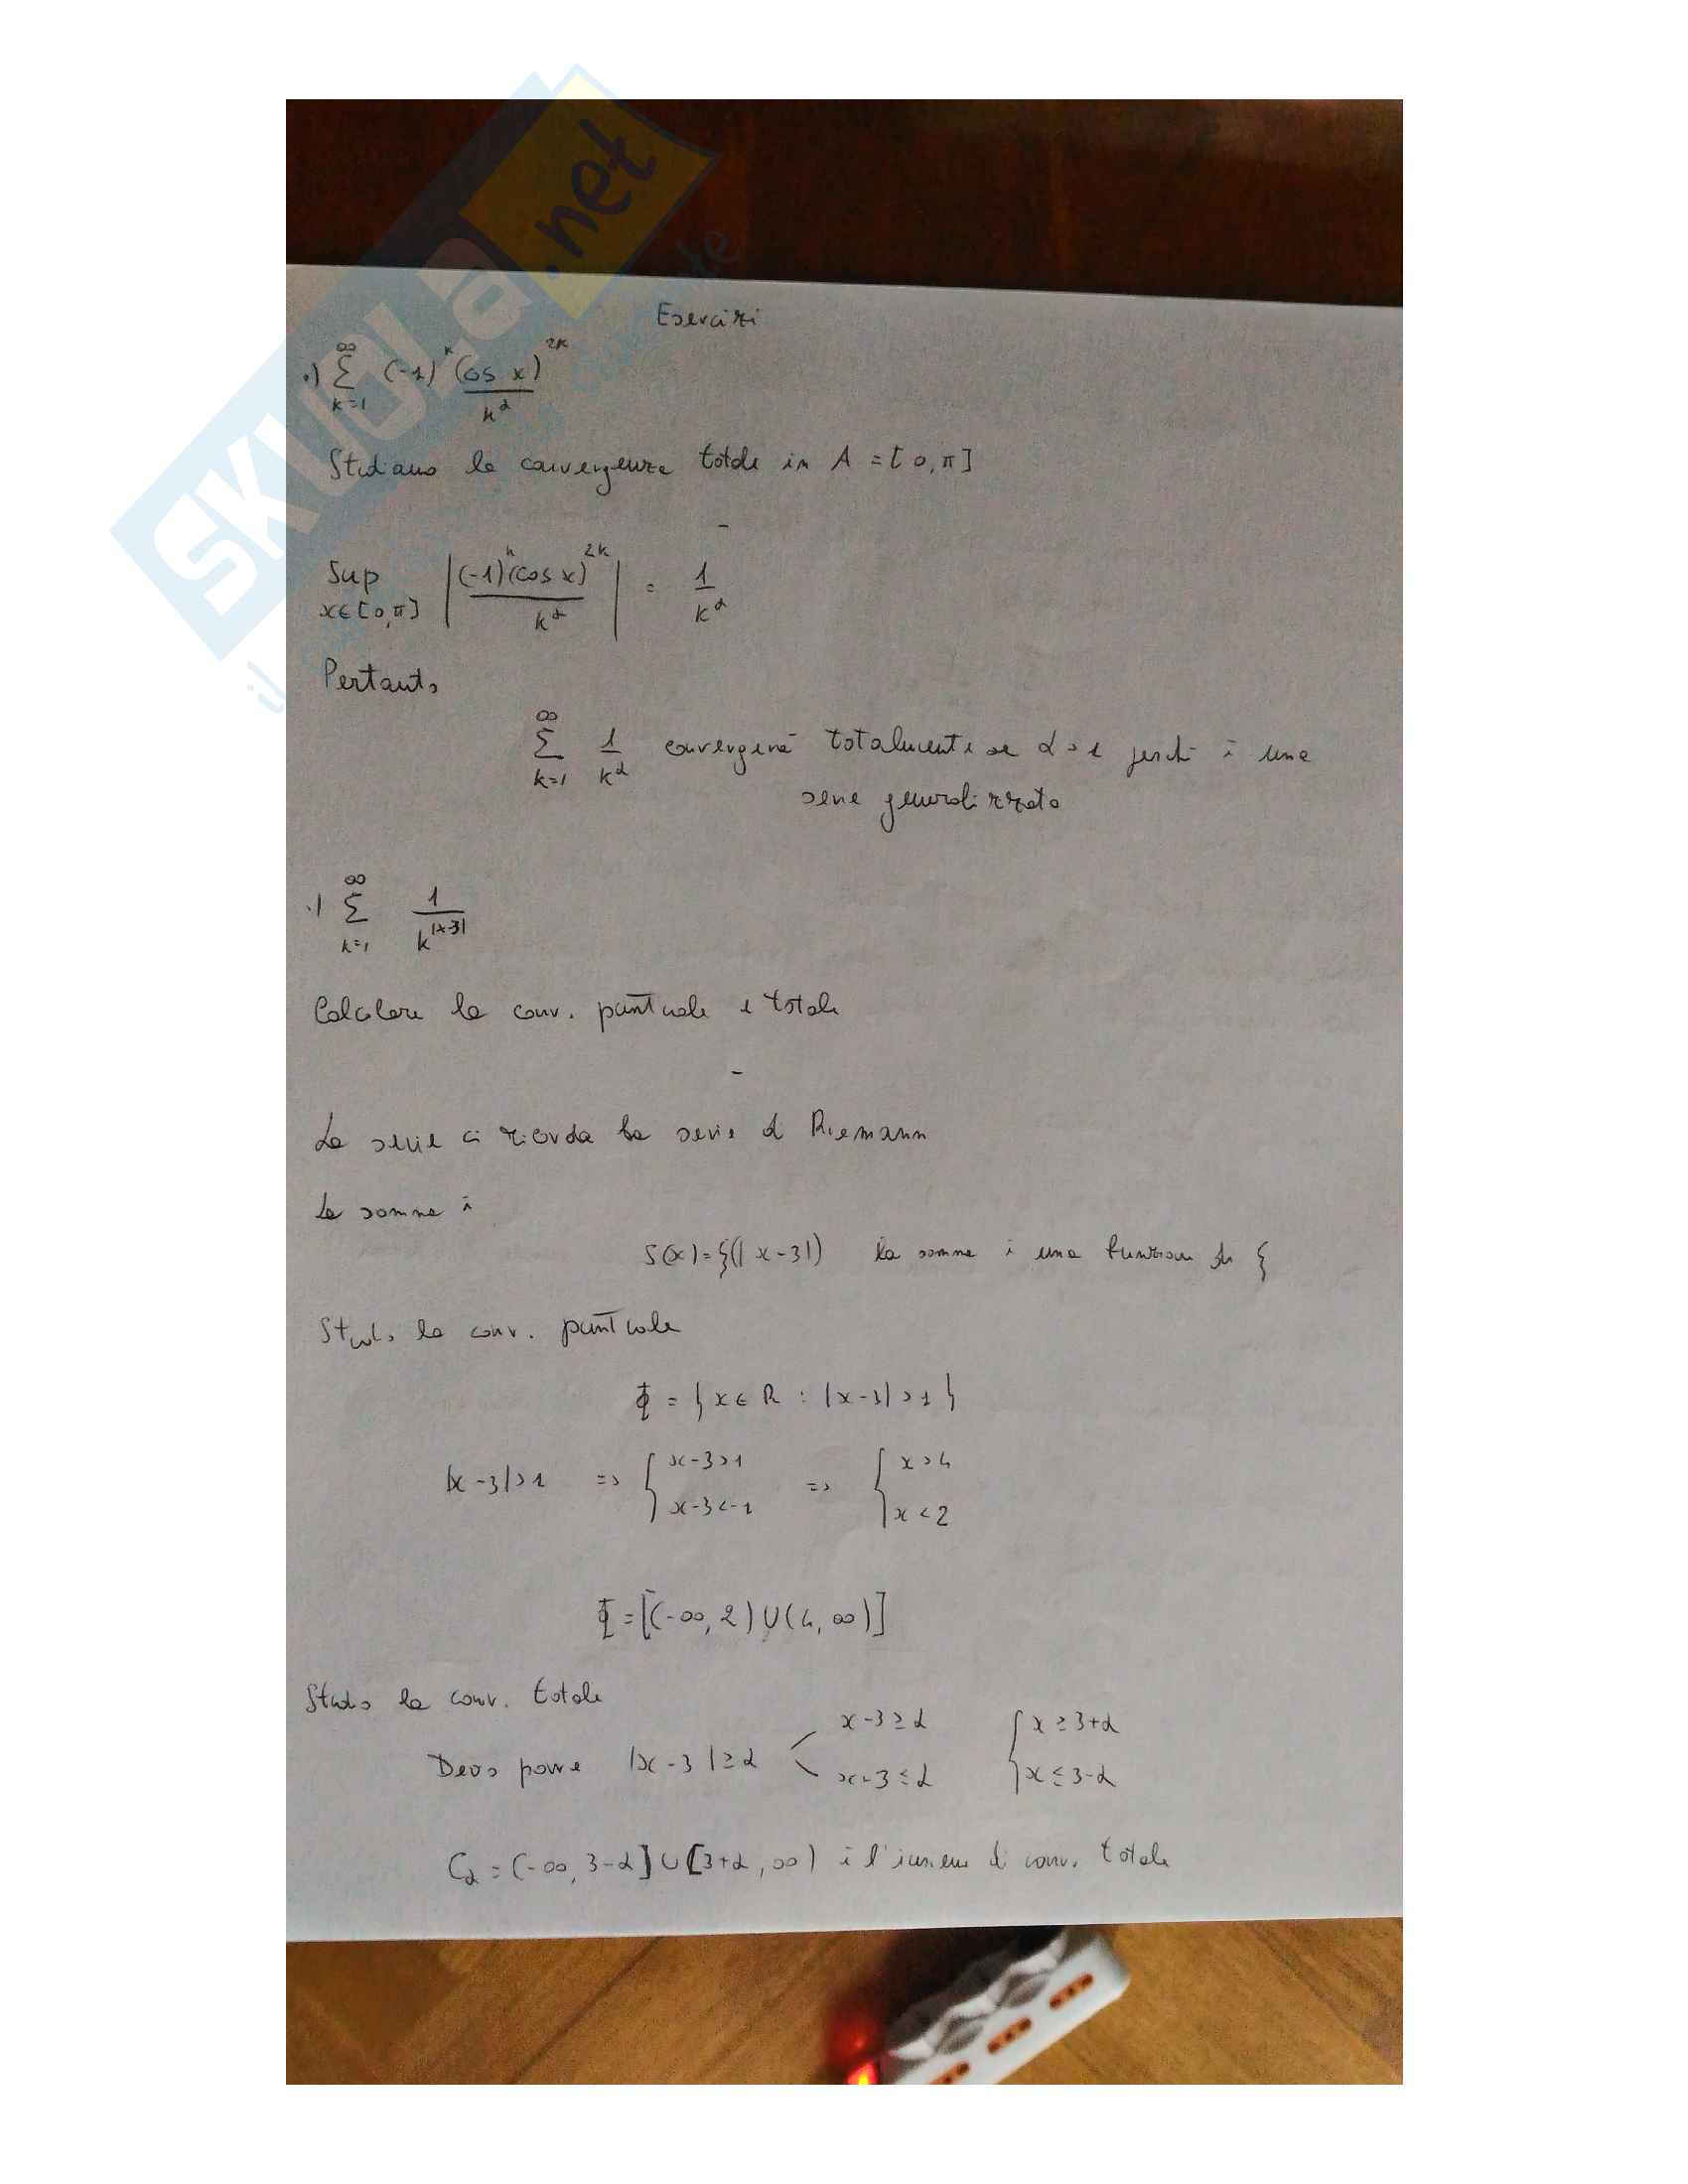 SKUOLA.net
Esercizi
.) ∞ Σ k=1 (-1)^k (cos x)^2k / k^α
Studiamo la convergenza totale in A = [0,π]
-
Sup x∈[0,π] | (-1)^k (cos x)^2k / k^α | = 1 / k^α
Pertanto
∞ Σ k=1 1 / k^α convergerà totalmente se α>1 perché è una
serie generalizzata
.) ∞ Σ k=1 1 / k^|x-3|
Calcolare la conv. puntuale e totale
-
La serie ci ricorda la serie di Riemann
La somma è
S(x)=ξ(|x-3|) la somma è una funzione di ξ
Studio la conv. puntuale
Φ = { x∈R : |x-3|>1 }
|x-3|>1 => { x-3>1 x-3<-1 => { x>4 x<2
Φ=[(-∞,2)∪(4,∞)]
Studio la conv. totale
Devo porre |x-3|≥α x-3≥α x-3≤α { x≥3+α x≤3-α
Cα=(-∞,3-α]∪[3+α,∞) è l'insieme di conv. totale